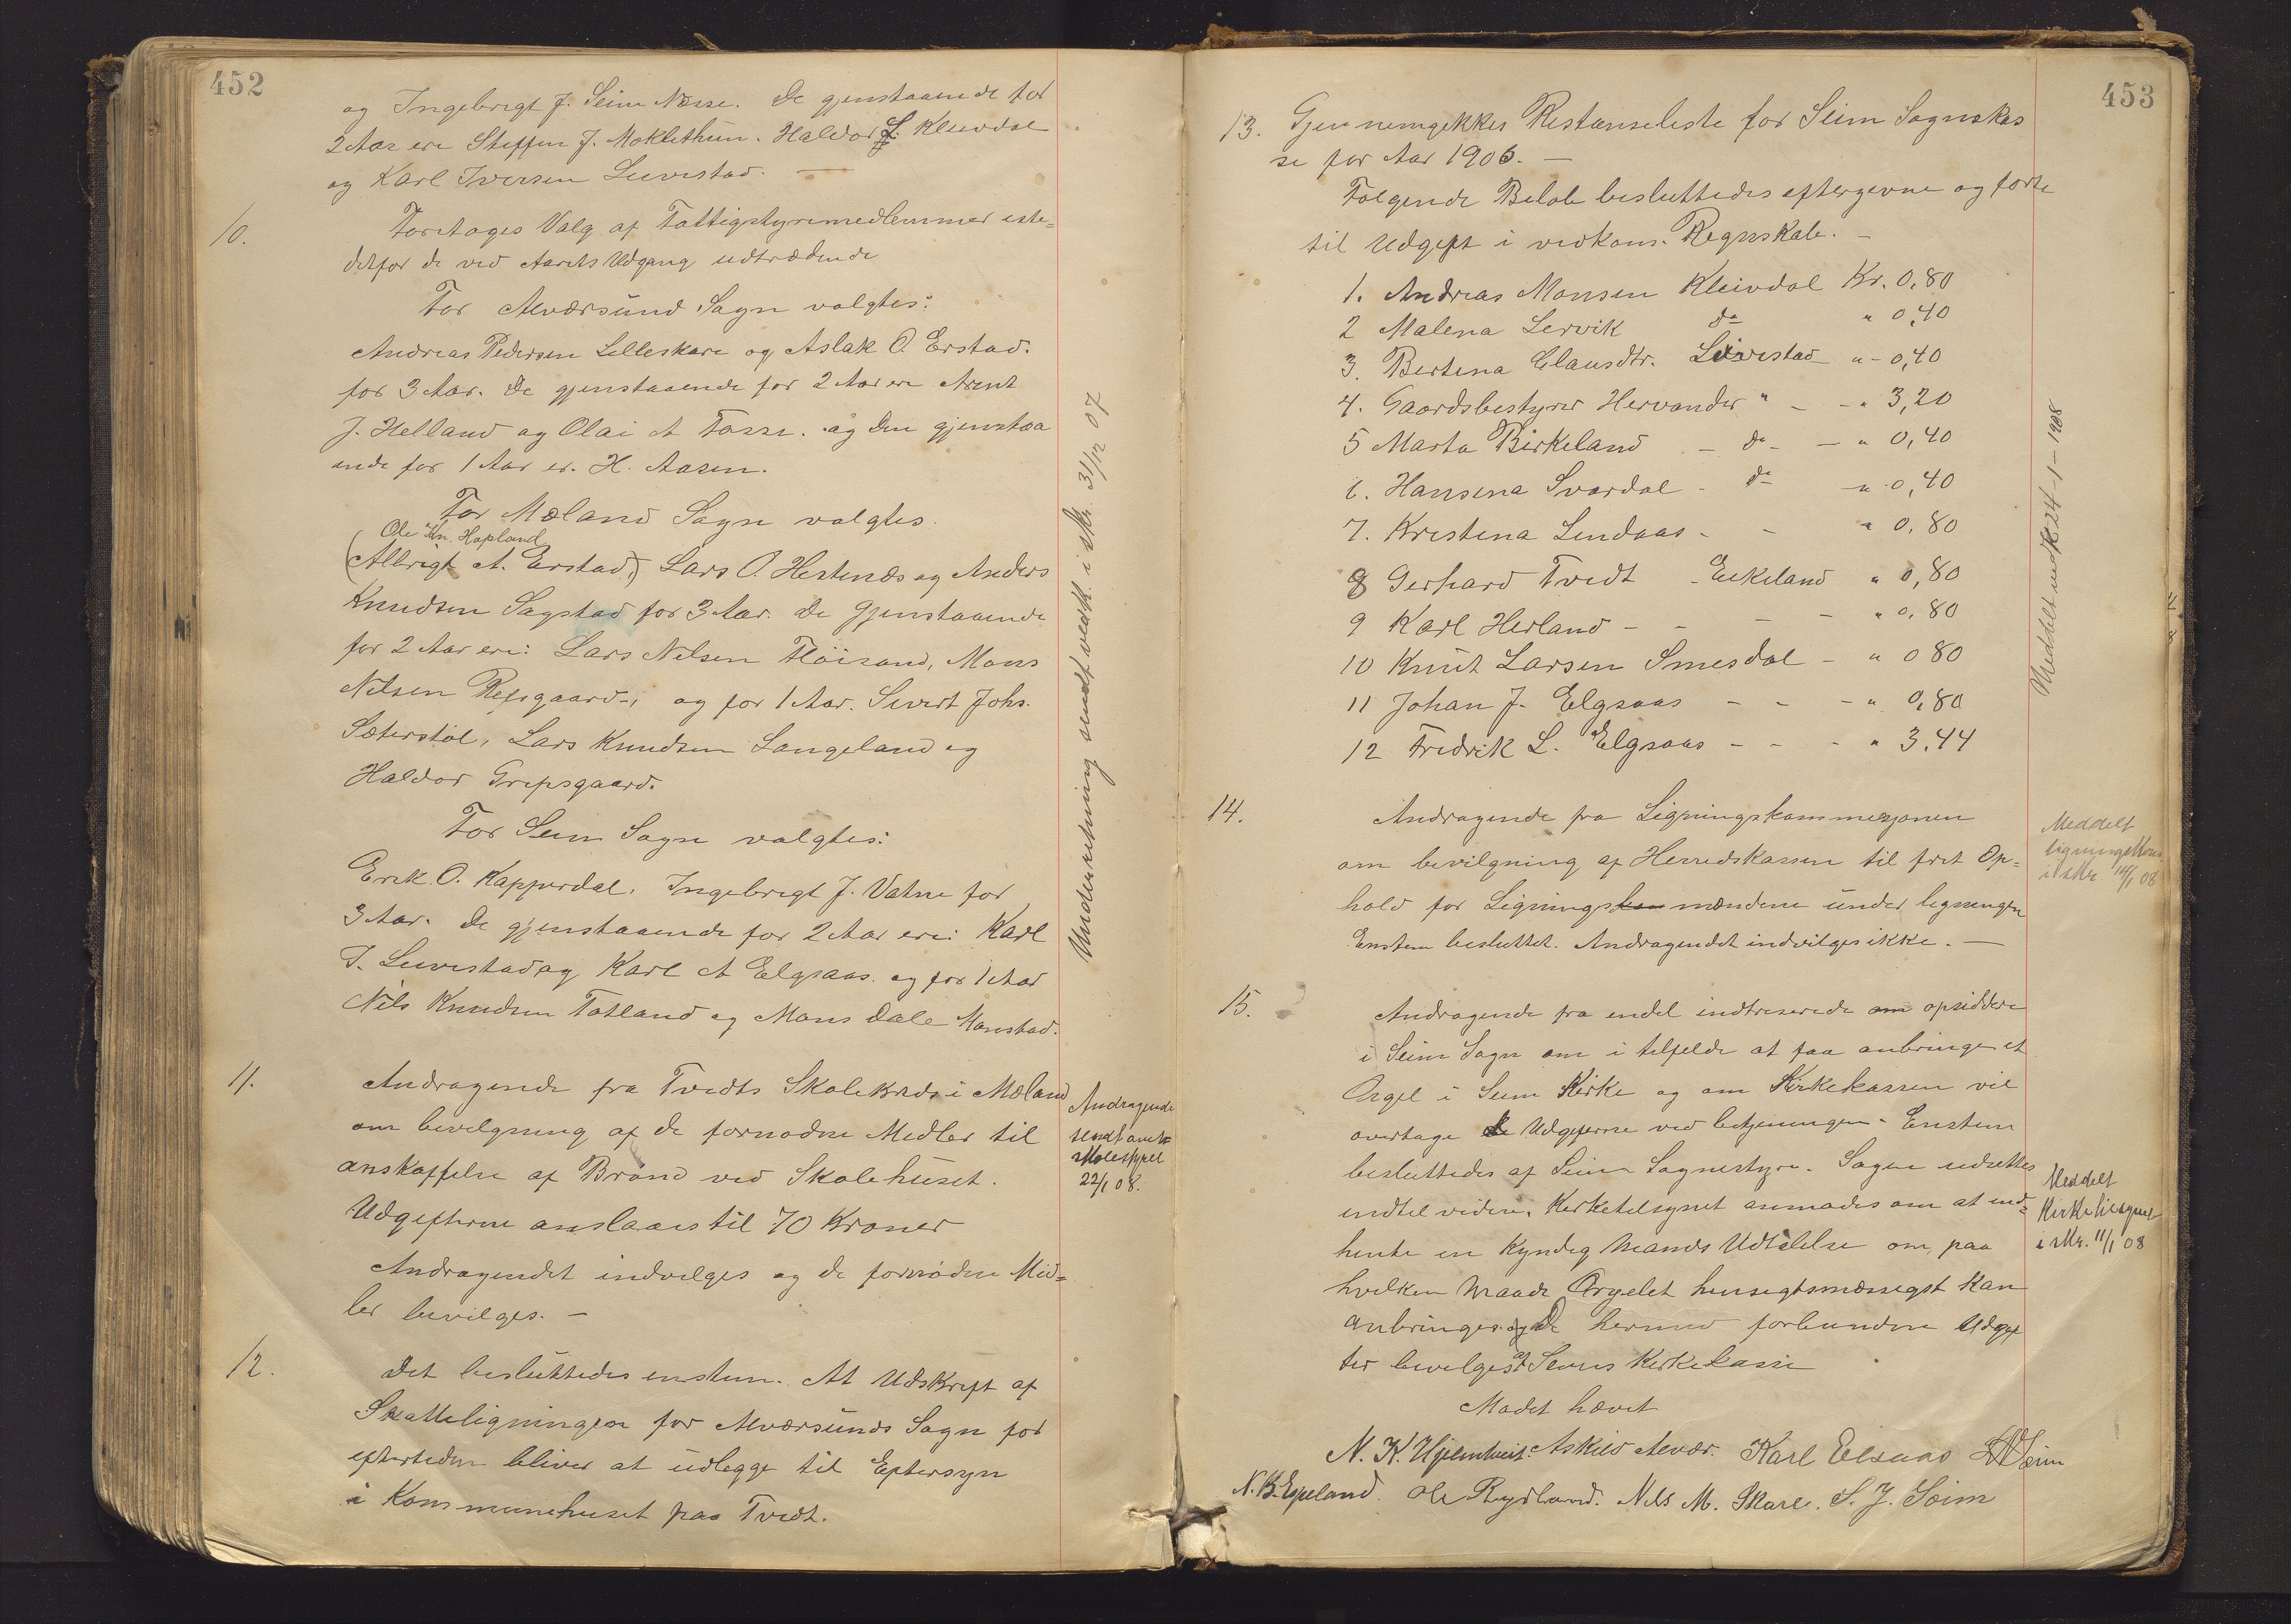 452
og Ingebrigt J. Seim Næsse. De gjenstaaende for
2 Aar ere Steffen J. Moklethun. Haldor J. Kleivdal
og Karl Iversen Leirestad. —
10.
Foretoges Valg af Fattigstyremedlemmer iste=
detfor de ved Aarets Udgang udtrædende
For Alværsund Sogn valgtes:
Andreas Pedersen Lilleskare og Aslak O. Erstad.
for 3 Aar. De gjenstaaende for 2 Aar ere Arent
J. Helland og Olai A Fosse. og den gjenstaa
ende for 1 Aar er. H. Aasen.
For Mæland Sogn valgtes.
Ole Kn. Hopland
(Albrigt A. Erstad,) Lars O. Hestenæs og Anders
Knudsen Sagstad for 3 Aar. De Gjenstaaende
for 2 Aar ere: Lars Nilsen Fløisand, Mons
Nilsen Refsgaard-; og for 1 Aar. Sivert Johs.
Sæterstøl, Lars Knudsen Langeland og
Haldor Gripsgaard.
For Seim Sogn valgtes:
Erik O. Kappurdal. Ingebrigt J. Vatne for
3 Aar. De gjenstaaende for 2 Aar ere: Karl
I. Leirestad og Karl A Elgsaas. og for 1 Aar
Nils Knudsen Totland og Mons Dale Monstad.
Underretning sendt vedk. i skr. 31/12 07
11.
Andragende fra Tvedts Skolekreds i Mæland
om bevilgning af de fornødne Midler til
anskaffelse af Brønd ved Skolehuset.
Udgifterne anslaaes til 70 Kroner
Andragendet indvilges og de fornødne Mid=
ler bevilges. —
Andragende
sendt
skolestyret
22/1 08.
12.
Det besluttedes enstem. At Udskrift af
Skatteligningen for Alværsunds Sogn for
eftertiden bliver at udlegge til Eftersyn
i Kommunehuset paa Tvedt.
453
13. Gjennemgikkes Restanseliste for Seim Sognskas
se for Aar 1906. —
Følgende Beløb besluttedes eftergivne og førte
til Udgift i vedkom. Regnskab. —
1. Andreas Monsen Kleivdal Kr. 0,80
2 Malena Lervik do " 0,40
3. Bertina Clausdtr. Leirestad " - 0,40
4. Gaardsbestyrer Hervander " - - " 3,20
5 Marta Birkeland - do - — " 0,40
6. Hansina Svardal - do " 0,40
7. Kristina Lindaas - - " 0,80
8 Gerhard Tvedt - Eikeland " 0,80
9 Karl Herland - - - - " 0,80
10 Knut Larsen Smesdal - " 0 80
11 Johan J. Elgsaas - - - " 0,80
12 Fredrik L. Elgsaas - - - " 3,44
Meddelt vedk 24-1-1908
14.
Andragende fra Ligningskommisjonen
om bevilgning af Herredskassen til frit Op=
hold for Ligningskom mændene under ligningen
Enstem besluttet. Andragendet indvilges ikke. —
Meddelt
ligningskom
i skr 14/1 08
15.
Andragende fra endel indtreserede om opsiddere
i Seim Sogn om i tilfelde at faa anbringe et
Orgel i Seim Kirke og om Kirkekassen vil
overtage de Udgifterne ved betjeningen - Enstem
besluttedes af Seim Sognestyre. Sagen udsættes
indtil videre. Kirketilsynet anmodes om at ind=
hente en Kyndig Mands Udtalelse om paa
hvilken Maade Orgelet hensigtsmæssigst kan
anbringes. og De hermed forbundne Udgif
ter bevilges af Seims Kirkekasse
Mødet hævet
Meddelt
Kirketilsynet
i skr. 11/1 08
N. K. Hjelmtveit. Askild Alvær. Karl Elsaas Seim
N. B. Espeland. Ole Rydland. Nils M. Skare. S. J. Seim